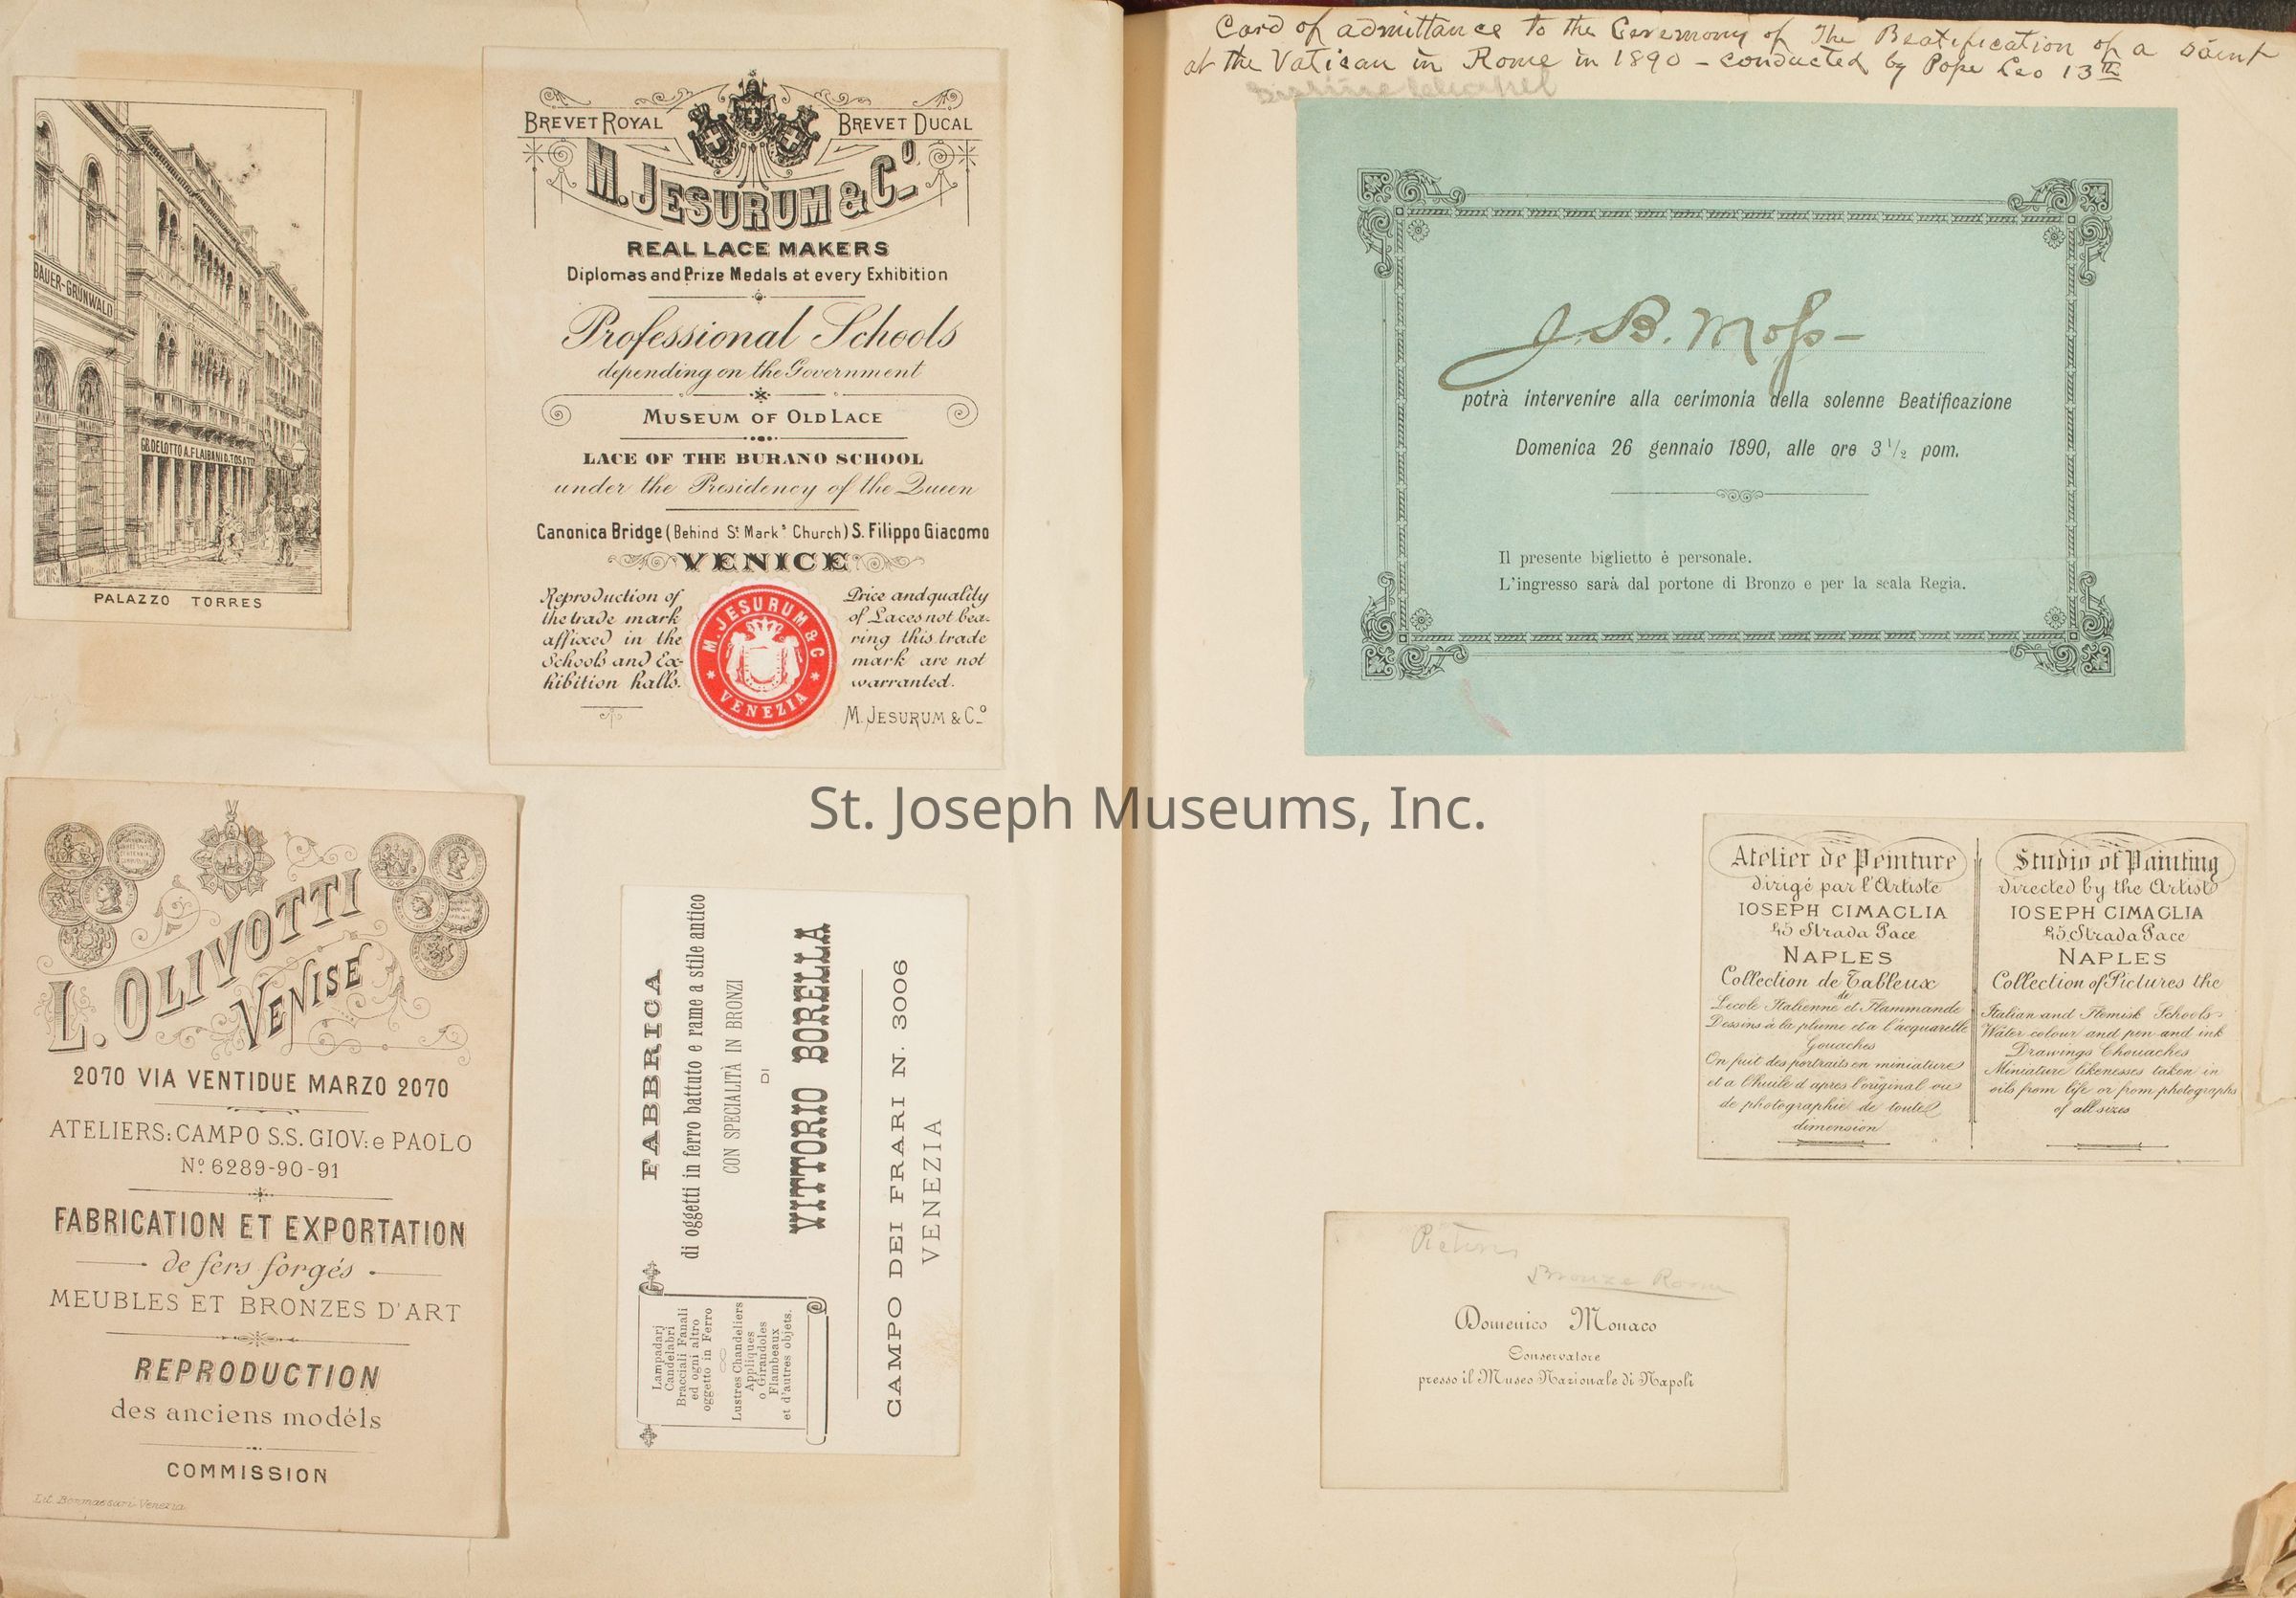 BAUER-GRÜNWALD
PALAZZO TORRES
BREVET ROYAL
BREVET DUCAL
M. JESURUM & Cº
REAL LACE MAKERS
Diplomas and Prize Medals at every Exhibition
Professional Schools
depending on the Government
MUSEUM OF OLD LACE
LACE OF THE BURANO SCHOOL
under the Presidency of the Queen
Canonica Bridge (Behind St Mark's Church) S. Filippo Giacomo
VENICE
Reproduction of
the trade mark
affixed in the
Schools and Ex-
hibition halls.
M. JESURUM & C
VENEZIA
Price and quality
of Laces not bea-
ring this trade
mark are not
warranted.
M. JESURUM & Cº
L. OLIVOTTI
VENISE
2070 VIA VENTIDUE MARZO 2070
ATELIERS: CAMPO S.S. GIOV: e PAOLO
Nº 6289-90-91
FABRICATION ET EXPORTATION
de fers forgés
MEUBLES ET BRONZES D'ART
REPRODUCTION
des anciens modéls
COMMISSION
Lit. Bonmassari-Venezia
FABBRICA
di oggetti in ferro battuto e rame a stile antico
CON SPECIALITÀ IN BRONZI
DI
VITTORIO BORELLA
CAMPO DEI FRARI N. 3006
VENEZIA
Lampadarj
Candelabri
Bracciali Fanali
ed ogni altro
oggetto in Ferro
Lustres Chandeliers
Appliques
o Girandoles
Flambeaux
et d'autres objets.
St. Joseph Museums, Inc.
Card of admittance to the Ceremony of The Beatification of a saint
at the Vatican in Rome in 1890 - conducted by Pope Leo 13th
J. B. Moss-
potrà intervenire alla cerimonia della solenne Beatificazione
Domenica 26 gennaio 1890, alle ore 3 1/2 pom.
Il presente biglietto é personale.
L'ingresso sarà dal portone di Bronzo e per la scala Regia.
Atelier de Peinture
dirigé par l'Artiste
IOSEPH CIMAGLIA
45 Strada Pace
NAPLES
Collection de Tableux
de
Lecole Italienne et Flammande
Dessins à la plume et a l'acquarelle
Gouaches
On fait des portraits en miniature
et a l'huile d'apres l'original ou
de photographie de toute
dimension
Studio of Painting
directed by the Artist
IOSEPH CIMAGLIA
45, Strada Pace
NAPLES
Collection of Pictures the
Italian and Flemish Schools-
Water colour and pen and ink
Drawings Chouaches
Miniature likenesses taken in
oils from life or from photographs
of all sizes
Bronze Room
Domenico Monaco
Conservatore
presso il Museo Nazionale di Napoli